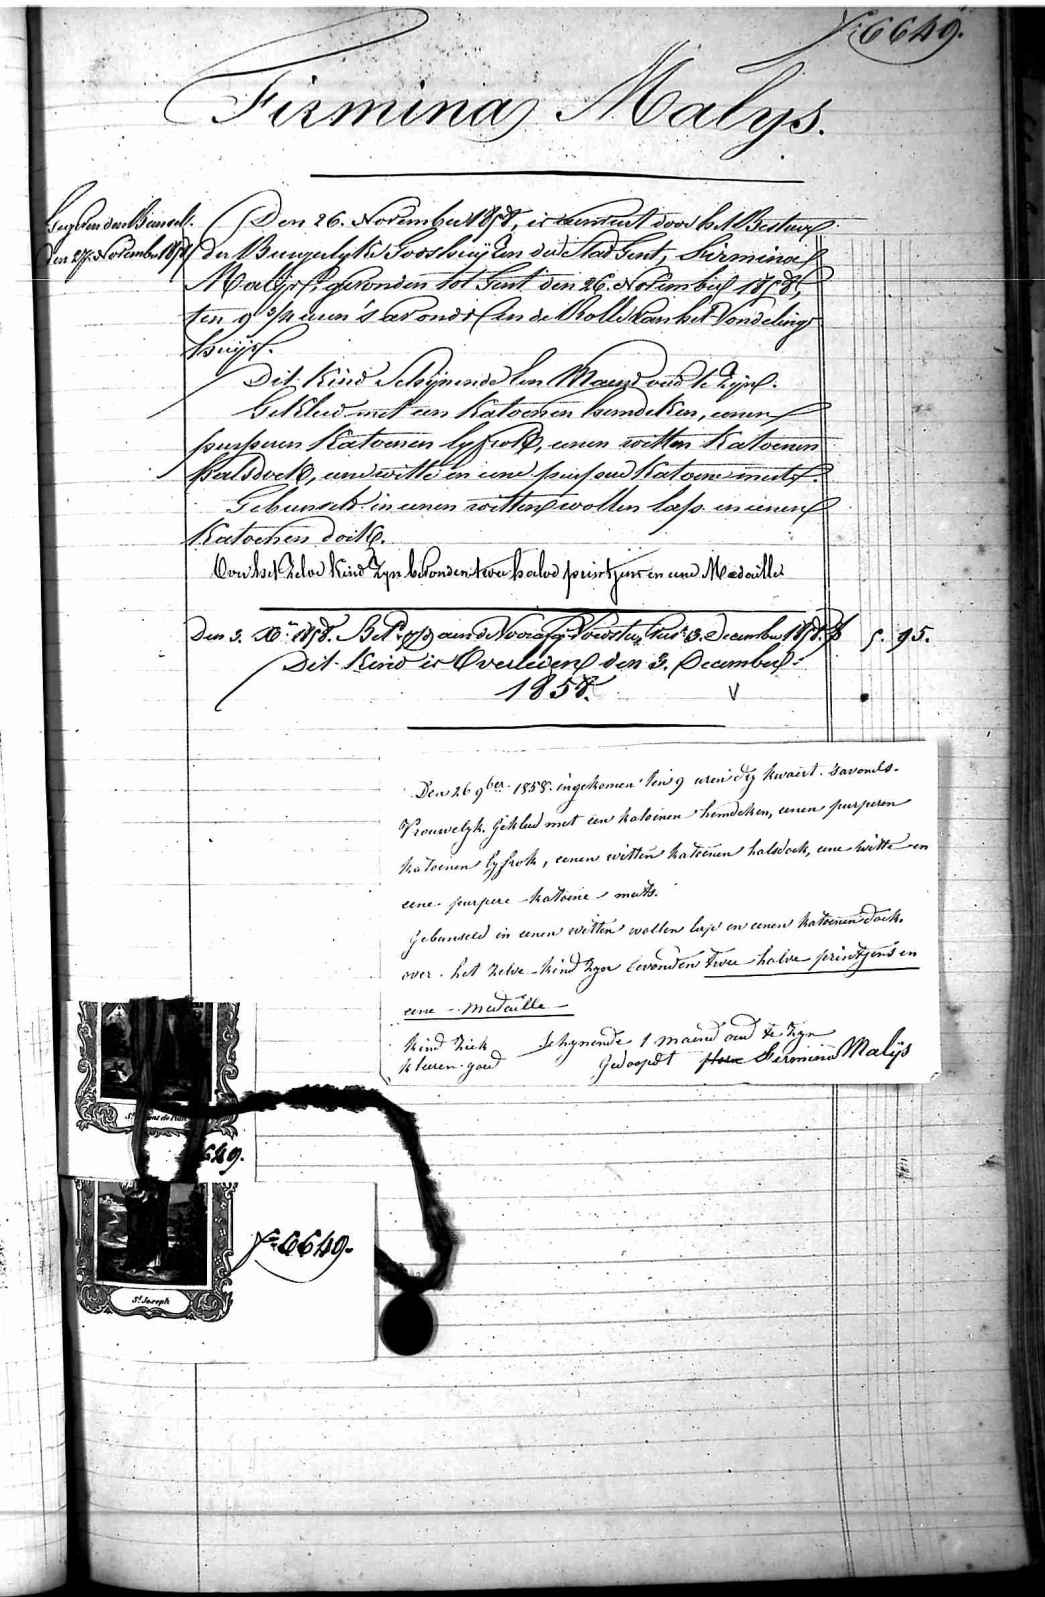 Fo. 6649.
Firmina Malys.
den 27. November 1858
Den 26. November 1858, is aenveert door het Bestuer
der Burgerlyke Godshuijzen der Stad Gent, Firmina
Malys, gevonden tot Gent den 26. November 1858,
ten 9 3/4 uren 's avonds in de Rolle van het Vondelings
huijs.
Dit Kind Schijnende Een Maend oud te Zijn.
Gekleed met een Katoenen hemdeken, eenen
purperen Katoenen lyfrok, eenen witten Katoenen
halsdoek, eene witte en eene purpere Katoene muts.
Gebunseld in eenen witten wollen lap en eenen
Katoenen doek.
Over het Zelve Kind Zyn bevonden twee halve printjens en eene Medaille
Den 3. Xber 1858. Bet. aen de 3. December 1858. f 5. 95.
Dit Kind is Overleden den 3. December
1858.
V
Den 26 9ber 1858 ingekomen ten 9 uren dry kwaert savonds.
Vrouwelyk. Gekleed met een katoenen hemdeken, eenen purperen
katoenen lyfrok, eenen witten katoenen halsdoek, eene witte en
eene purpere katoene muts.
Gebunseld in eenen witten wollen lap en eenen katoenen doek.
over het zelve kind zyn bevonden twee halve printjens en
eene medaille
kind ziek schynende 1 maend oud te zyn
kleeren goed Gedoopt Firmina Malys
6649.
Fo. 6649.
St. Joseph